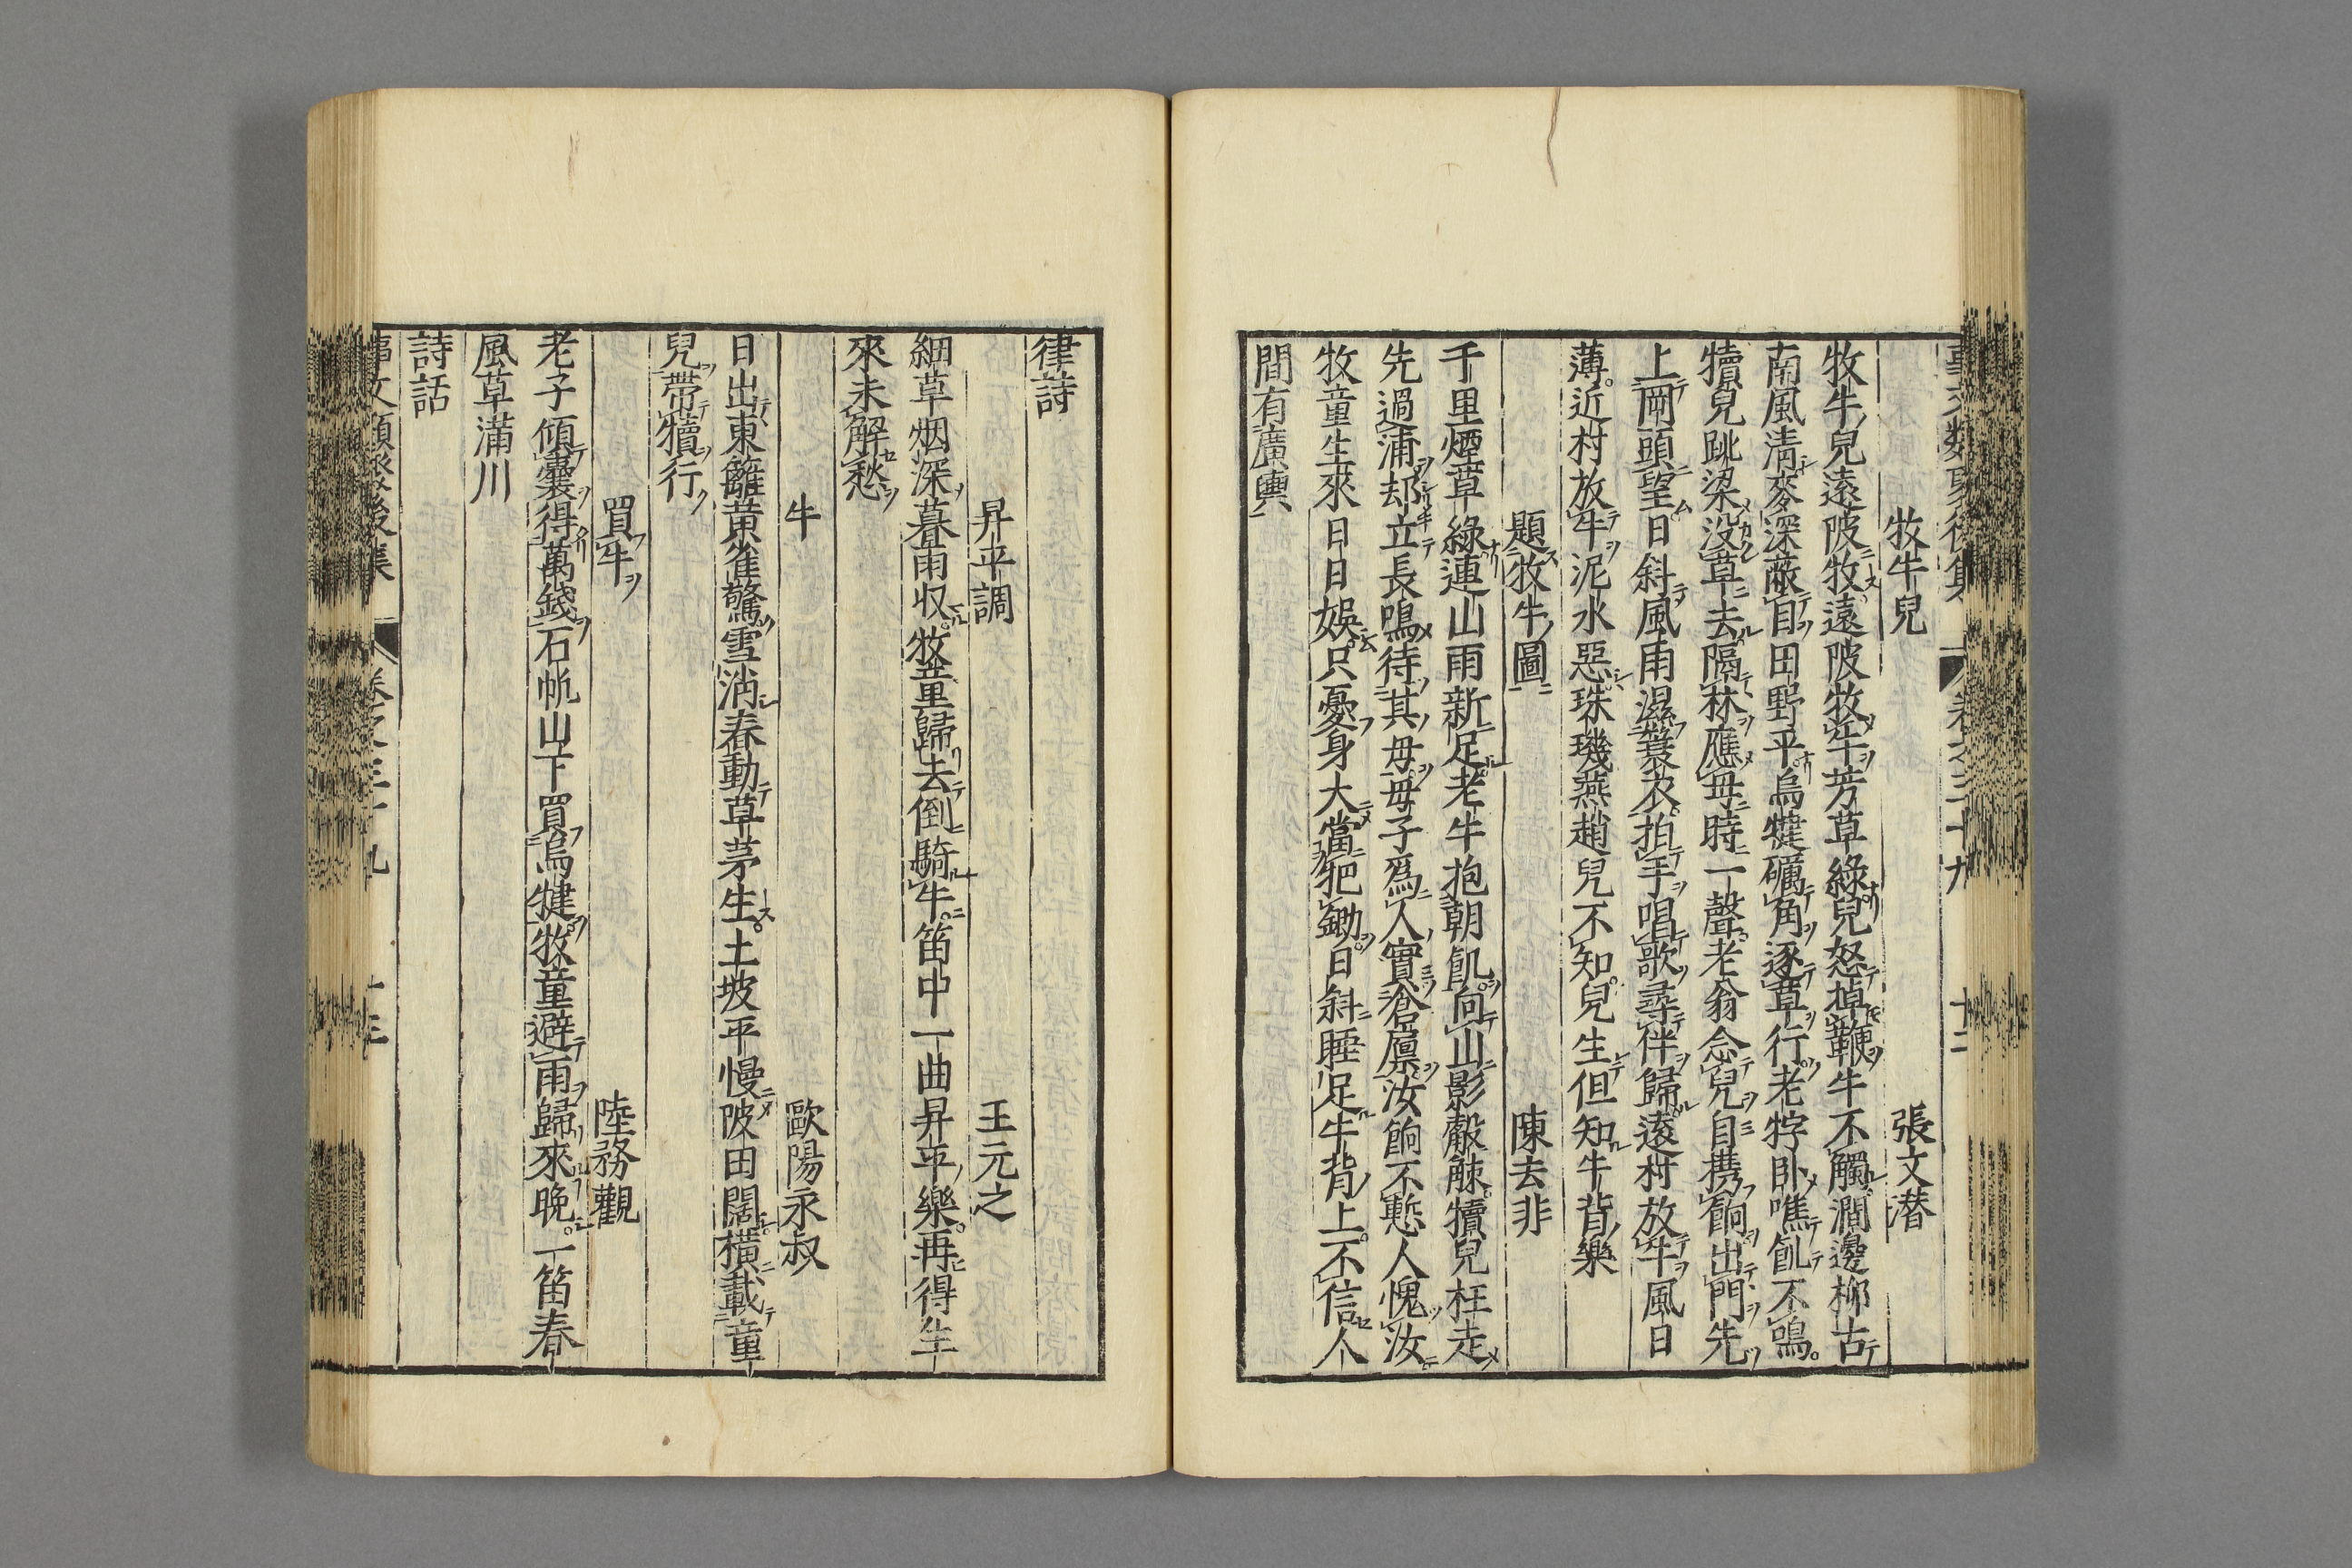 事文類聚後集 卷之三十九 十二
牧牛兒 張文潜
牧牛兒遠陂牧遠陂牧牛芳草綠兒怒掉鞭牛不觸澗邊柳古
南風清麥深蔽目田野平烏犍礪角逐草行老牸卧噍飢不鳴
犢兒跳梁没草去隔林應母時一聲老翁念兒自携餉出門先
上岡頭望日斜風雨濕蓑衣拍手唱歌尋伴歸遠村放牛風日
薄近村放牛泥水惡珠璣燕趙兒不知兒生但知牛背樂
題牧牛圖 陳去非
千里煙草綠連山雨新足老牛抱朝飢向山影觳觫犢兒狂走
先過浦却立長鳴待其母母子爲人實倉廩汝餉不慙人愧汝
牧童生來日日娛只憂身大當把鋤日斜睡足牛背上不信人
間有廣輿
律詩
昇平調 王元之
細草烟深暮雨収牧童歸去倒騎牛笛中一曲昇平樂再得生
來未解愁
牛 歐陽永叔
日出東籬黄雀驚雪消春動草茅生土坡平慢陂田闊橫載童
兒帶犢行
買牛 陸務觀
老子傾囊得萬錢石帆山下買烏犍牧童避雨歸來晚一笛春
風草滿川
詩話
事文類聚後集 卷之三十九 十三